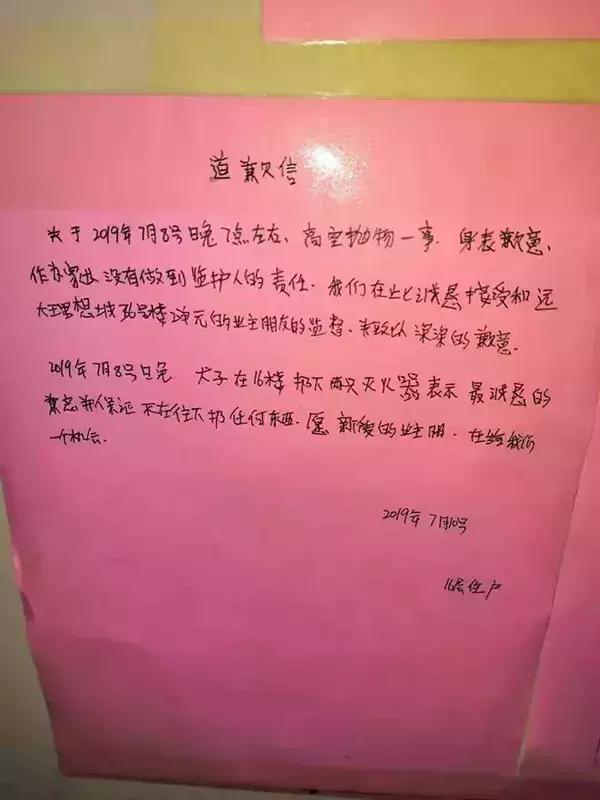 道歉信
关于2019年7月8号晚7点左右、高空抛物一事. 身表歉意、
作为家长没有做到监护人的责任. 我们在此诚恳接受和远
大理想城36号楼2单元的业主朋友的监督、并致以深深的歉意.
2019年7月8号晚 犬子在16楼扔下两只灭火器 表示最诚恳的
兼意 并保证不在往下扔任何东西. 愿 的业主朋. 在给我们
一个机会.
2019年7月10号
16层住户